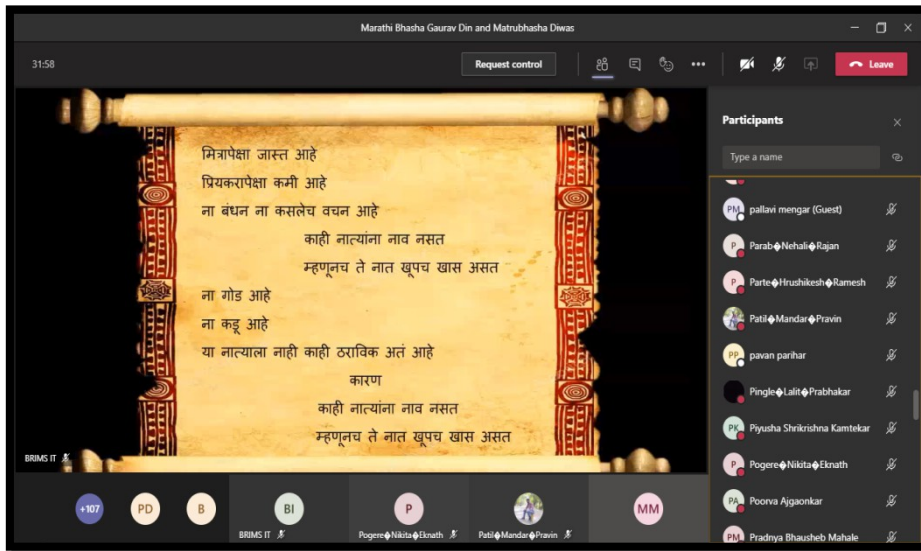 Marathi Bhasha Gaurav Din and Matrubhasha Diwas
31:58
Request control
Leave
मित्रापेक्षा जास्त आहे
प्रियकरापेक्षा कमी आहे
ना बंधन ना कसलेच वचन आहे
काही नात्यांना नाव नसत
म्हणूनच ते नात खूपच खास असत
ना गोड आहे
ना कडू आहे
या नात्याला नाही काही ठराविक अतं आहे
कारण
काही नात्यांना नाव नसत
म्हणूनच ते नात खूपच खास असत
BRIMS IT
+107 PD B BI P MM
BRIMS IT Pogere�Nikita�Eknath Patil�Mandar�Pravin
Participants
Type a name
PM pallavi mengar (Guest)
P Parab�Nehali�Rajan
P Parte�Hrushikesh�Ramesh
Patil�Mandar�Pravin
PP pavan parihar
Pingle�Lalit�Prabhakar
PK Piyusha Shrikrishna Kamtekar
P Pogere�Nikita�Eknath
PA Poorva Ajgaonkar
PM Pradnya Bhausheb Mahale